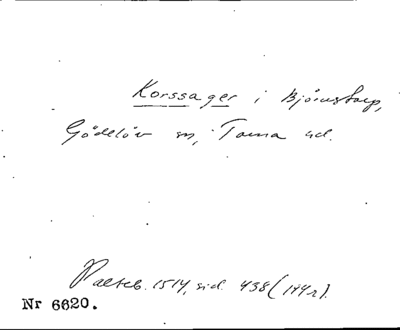 Korssager i Björnstorp,
Gödelöv sn, Torna hd.
Palteb. 1514, sid. 438 (174r).
Nr 6620.